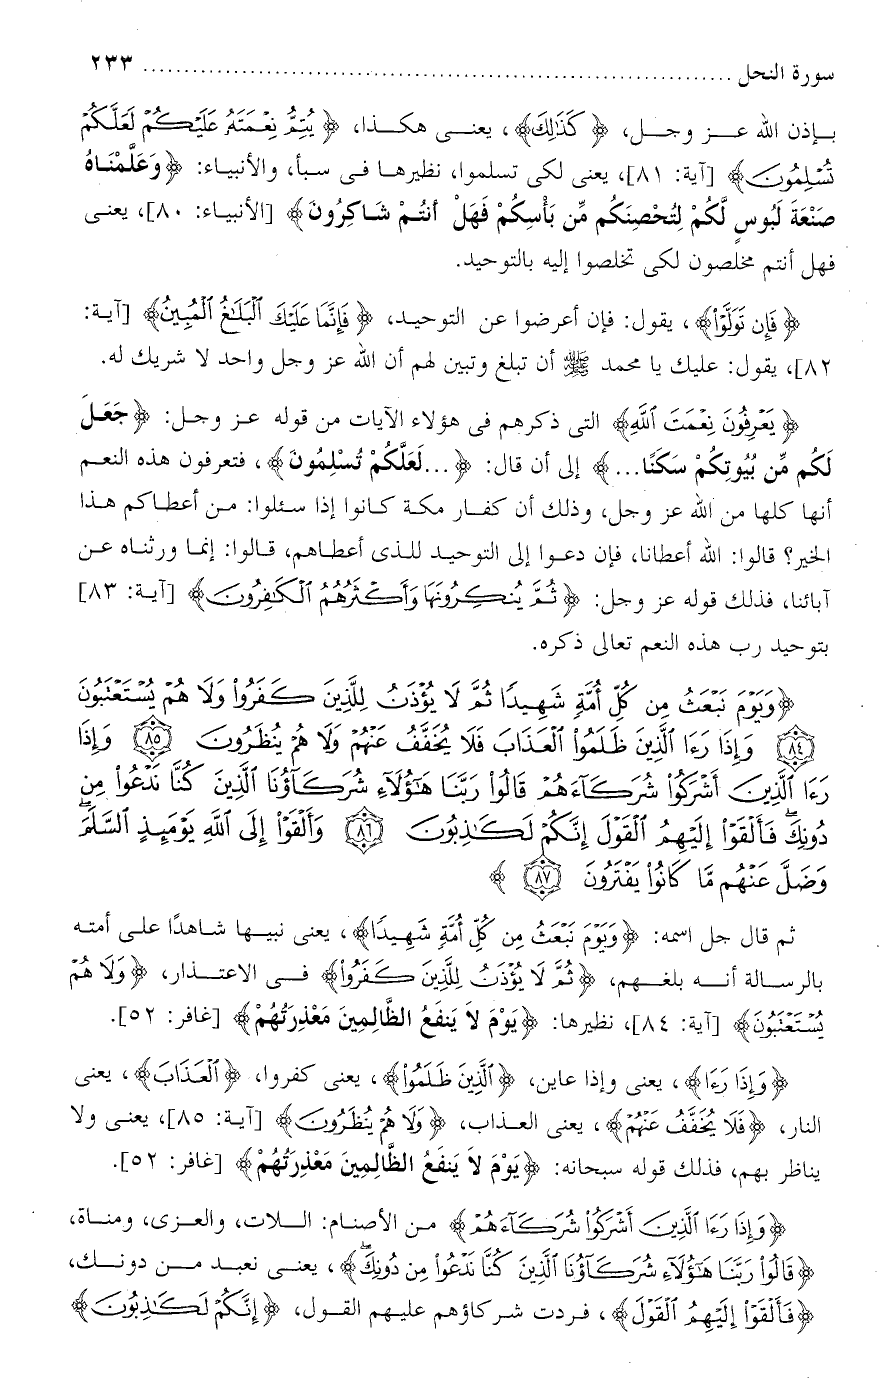 سورة النحل ........................................................................ ٢٣٣
بإذن الله عز وجل، ﴿ كَذَٰلِكَ﴾، يعنى هكذا، ﴿ يُتِمُّ نِعْمَتَهُۥ عَلَيْكُمْ لَعَلَّكُمْ
تُسْلِمُونَ﴾ [آية: ٨١]، يعنى لكى تسلموا، نظيرها فى سبأ، والأنبياء: ﴿ وَعَلَّمْنَاهُ
صَنْعَةَ لَبُوسٍ لَّكُمْ لِتُحْصِنَكُم مِّن بَأْسِكُمْ فَهَلْ أَنتُمْ شَاكِرُونَ﴾ [الأنبياء: ٨٠]، يعنى
فهل أنتم مخلصون لكى تخلصوا إليه بالتوحيد.
﴿ فَإِن تَوَلَّوْا۟﴾، يقول: فإن أعرضوا عن التوحيد، ﴿ فَإِنَّمَا عَلَيْكَ ٱلْبَلَٰغُ ٱلْمُبِينُ﴾ [آية:
٨٢]، يقول: عليك يا محمد ﷺ أن تبلغ وتبين لهم أن الله عز وجل واحد لا شريك له.
﴿ يَعْرِفُونَ نِعْمَتَ ٱللَّهِ﴾ التى ذكرهم فى هؤلاء الآيات من قوله عز وجل: ﴿ جَعَلَ
لَكُم مِّن بُيُوتِكُمْ سَكَنًا...﴾ إلى أن قال: ﴿ ...لَعَلَّكُمْ تُسْلِمُونَ﴾، فتعرفون هذه النعم
أنها كلها من الله عز وجل، وذلك أن كفار مكة كانوا إذا سئلوا: من أعطاكم هذا
الخير؟ قالوا: الله أعطانا، فإن دعوا إلى التوحيد للذى أعطاهم، قالوا: إنما ورثناه عن
آبائنا، فذلك قوله عز وجل: ﴿ ثُمَّ يُنكِرُونَهَا وَأَكْثَرُهُمُ ٱلْكَٰفِرُونَ﴾ [آية: ٨٣]
بتوحيد رب هذه النعم تعالى ذكره.
﴿ وَيَوْمَ نَبْعَثُ مِن كُلِّ أُمَّةٍ شَهِيدًا ثُمَّ لَا يُؤْذَنُ لِلَّذِينَ كَفَرُوا۟ وَلَا هُمْ يُسْتَعْتَبُونَ
٨٤ وَإِذَا رَءَا ٱلَّذِينَ ظَلَمُوا۟ ٱلْعَذَابَ فَلَا يُخَفَّفُ عَنْهُمْ وَلَا هُمْ يُنظَرُونَ ٨٥ وَإِذَا
رَءَا ٱلَّذِينَ أَشْرَكُوا۟ شُرَكَآءَهُمْ قَالُوا۟ رَبَّنَا هَٰٓؤُلَآءِ شُرَكَآؤُنَا ٱلَّذِينَ كُنَّا نَدْعُوا۟ مِن
دُونِكَ ۖ فَأَلْقَوْا۟ إِلَيْهِمُ ٱلْقَوْلَ إِنَّكُمْ لَكَٰذِبُونَ ٨٦ وَأَلْقَوْا۟ إِلَى ٱللَّهِ يَوْمَئِذٍ ٱلسَّلَمَ ۖ
وَضَلَّ عَنْهُم مَّا كَانُوا۟ يَفْتَرُونَ ٨٧ ﴾
ثم قال جل اسمه: ﴿ وَيَوْمَ نَبْعَثُ مِن كُلِّ أُمَّةٍ شَهِيدًا﴾، يعنى نبيها شاهدًا على أمته
بالرسالة أنه بلغهم، ﴿ ثُمَّ لَا يُؤْذَنُ لِلَّذِينَ كَفَرُوا۟﴾ فى الاعتذار، ﴿ وَلَا هُمْ
يُسْتَعْتَبُونَ﴾ [آية: ٨٤]، نظيرها: ﴿ يَوْمَ لاَ يَنفَعُ الظَّالِمِينَ مَعْذِرَتُهُمْ﴾ [غافر: ٥٢].
﴿ وَإِذَا رَءَا﴾، يعنى وإذا عاين، ﴿ ٱلَّذِينَ ظَلَمُوا۟﴾، يعنى كفروا، ﴿ ٱلْعَذَابَ﴾، يعنى
النار، ﴿ فَلَا يُخَفَّفُ عَنْهُمْ﴾، يعنى العذاب، ﴿ وَلَا هُمْ يُنظَرُونَ﴾ [آية: ٨٥]، يعنى ولا
يناظر بهم، فذلك قوله سبحانه: ﴿ يَوْمَ لاَ يَنفَعُ الظَّالِمِينَ مَعْذِرَتُهُمْ﴾ [غافر: ٥٢].
﴿ وَإِذَا رَءَا ٱلَّذِينَ أَشْرَكُوا۟ شُرَكَآءَهُمْ﴾ من الأصنام: اللات، والعزى، ومناة،
﴿ قَالُوا۟ رَبَّنَا هَٰٓؤُلَآءِ شُرَكَآؤُنَا ٱلَّذِينَ كُنَّا نَدْعُوا۟ مِن دُونِكَ ۖ﴾، يعنى نعبد من دونك،
﴿ فَأَلْقَوْا۟ إِلَيْهِمُ ٱلْقَوْلَ﴾، فردت شركاؤهم عليهم القول، ﴿ إِنَّكُمْ لَكَٰذِبُونَ﴾